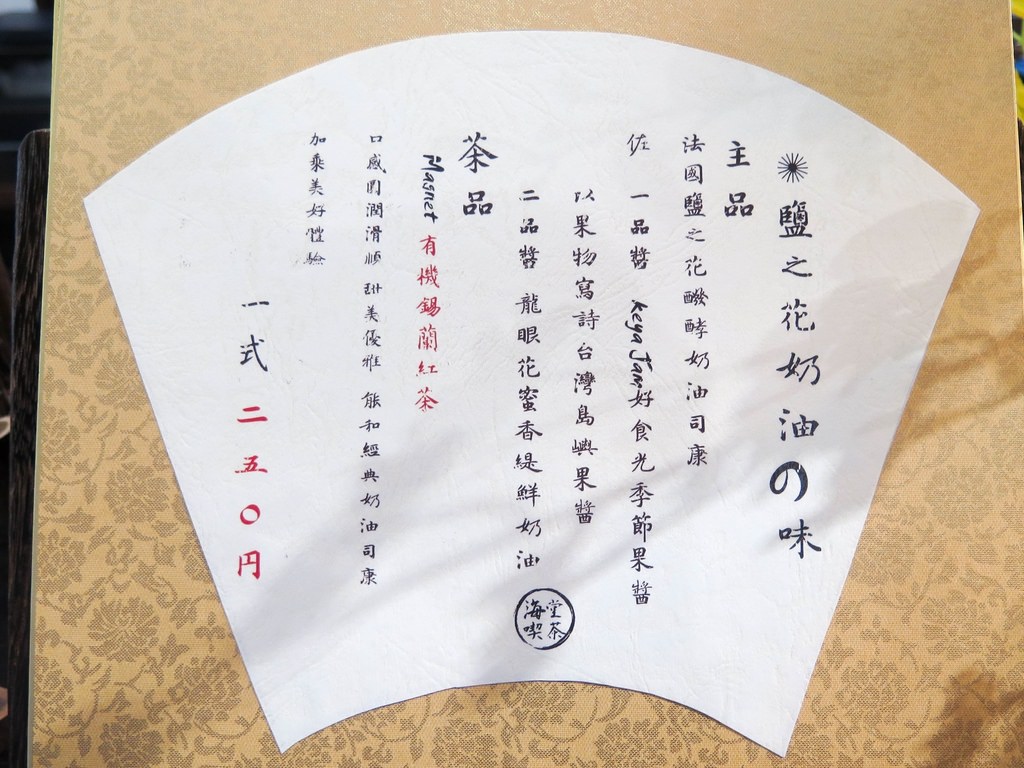 鹽之花奶油の味
主品
法國鹽之花醱酵奶油司康
佐 一品醬 keya Jam好食光季節果醬
以果物寫詩台灣島嶼果醬
二品醬 龍眼花蜜香緹鮮奶油
茶品
Magnet 有機錫蘭紅茶
口感圓潤滑順 甜美優雅 能和經典奶油司康
加乘美好體驗
一式 二五〇円
海堂喫茶